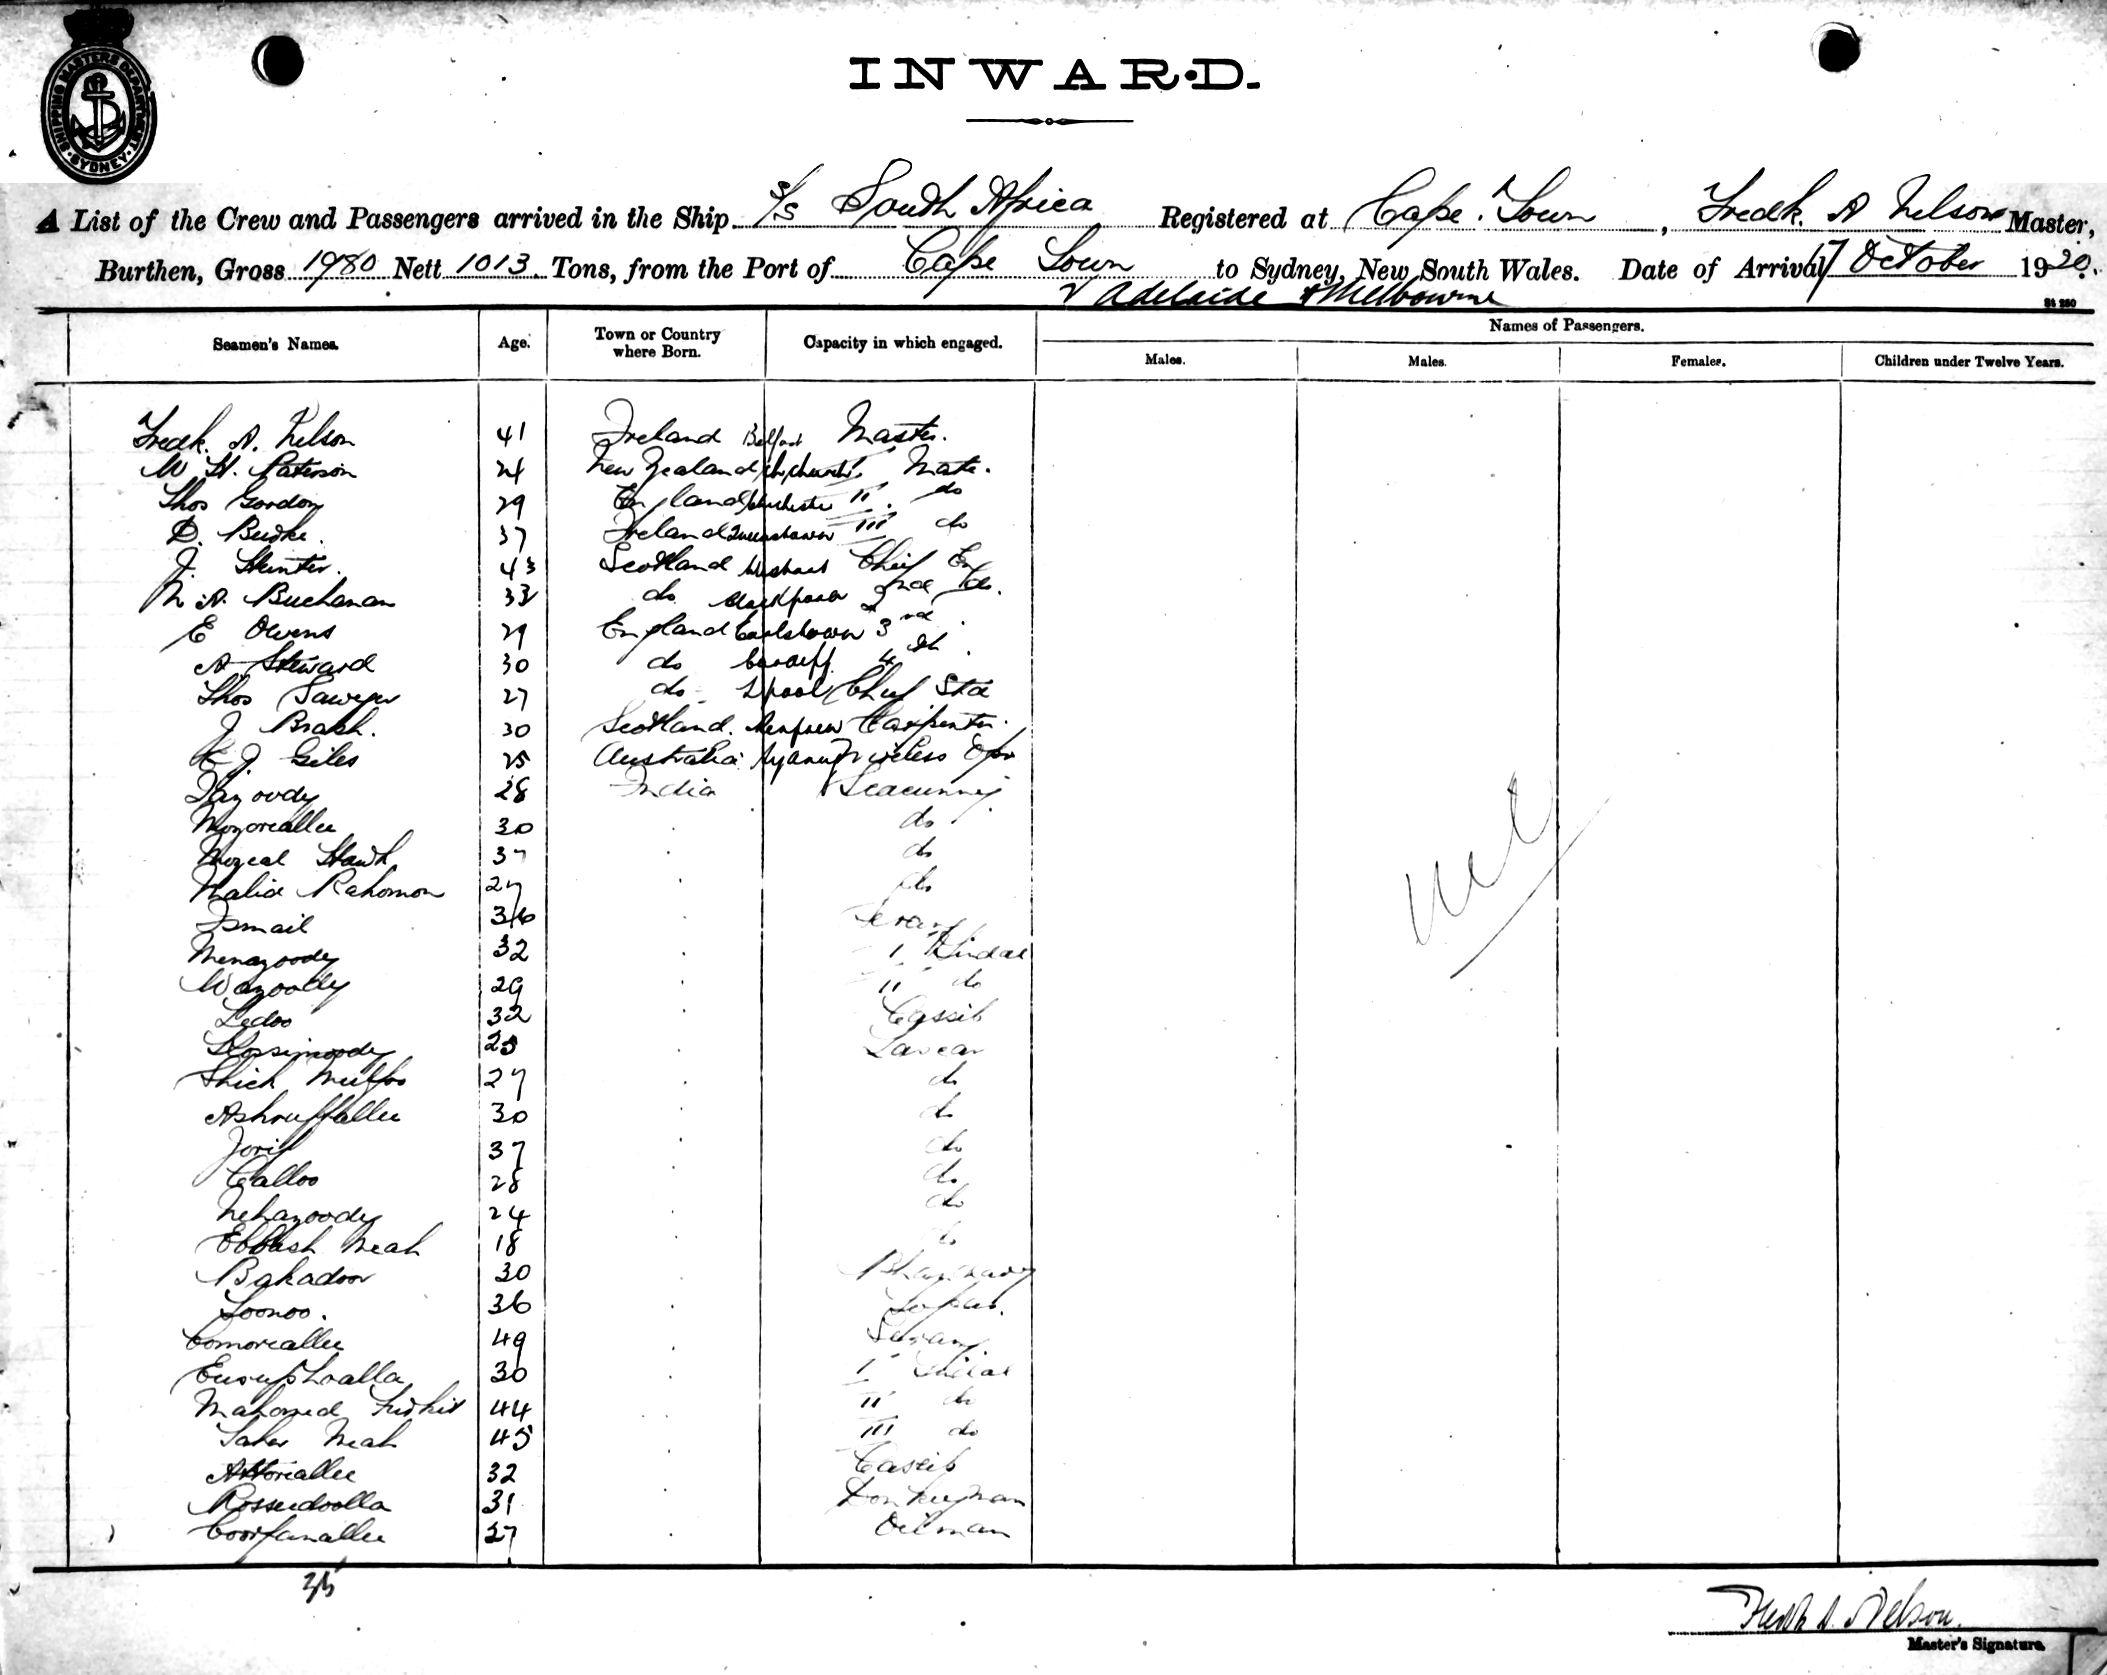 SHIPPING MASTERS DEPARTMENT SYDNEY
INWARD.
A List of the Crew and Passengers arrived in the Ship S/S South Africa Registered at Cape Town, Fredk. A Nelson Master,
Burthen, Gross 1980 Nett 1013 Tons, from the Port of Cape Town to Sydney, New South Wales. Date of Arrival 17 October 1920.
Adelaide & Melbourne
St 280
Seamen's Names. Age. Town or Country where Born. Capacity in which engaged. Names of Passengers.
Males. Males. Females. Children under Twelve Years.
Fredk. A. Nelson 41 Ireland Belfast Master.
W. H. Paterson 24 New Zealand Ch,church I Mate.
Thos Gordon 29 England II do
D. Burke. 37 Ireland Queenstown III do
J. Hunter. 43 Scotland Chief En
A. Buchanan 33 do 2nd do.
E Owens 29 England Earlstown 3rd.
A Steward 30 do Cardiff 4th.
Thos Sawyer 27 do L'pool Chief Std
J Brash. 30 Scotland. Renfrew Carpenter.
E J. Giles 25 Australia Sydney Wireless Opr
28 India Seacunny
Mozoreallee 30 do
37 do
Malid Rahomon 27 do
Ismail 36 Serang
Menazoody 32 I Tindal
Wazoodly 29 II do
Ledoo 32 Cassib
25 Lascar
27 do
Ashrouffallee 30 do
37 do
Calloo 28 do
Nehazoody 24 do
Meah 18 do
Bahadoor 30
Soonoo. 36
Comoreallee 49 Serang
30 I Tindal
Mahomed 44 II do
Meah 45 III do
Attoreallee 32 Cassib
Rosseedoolla 31 Donkeyman
27 Oilman
Nil
35
Fredk A. Nelson.
Master's Signature